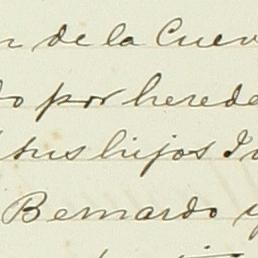 n de la Cuev
do por herede
sus hijos I
Bernardo y